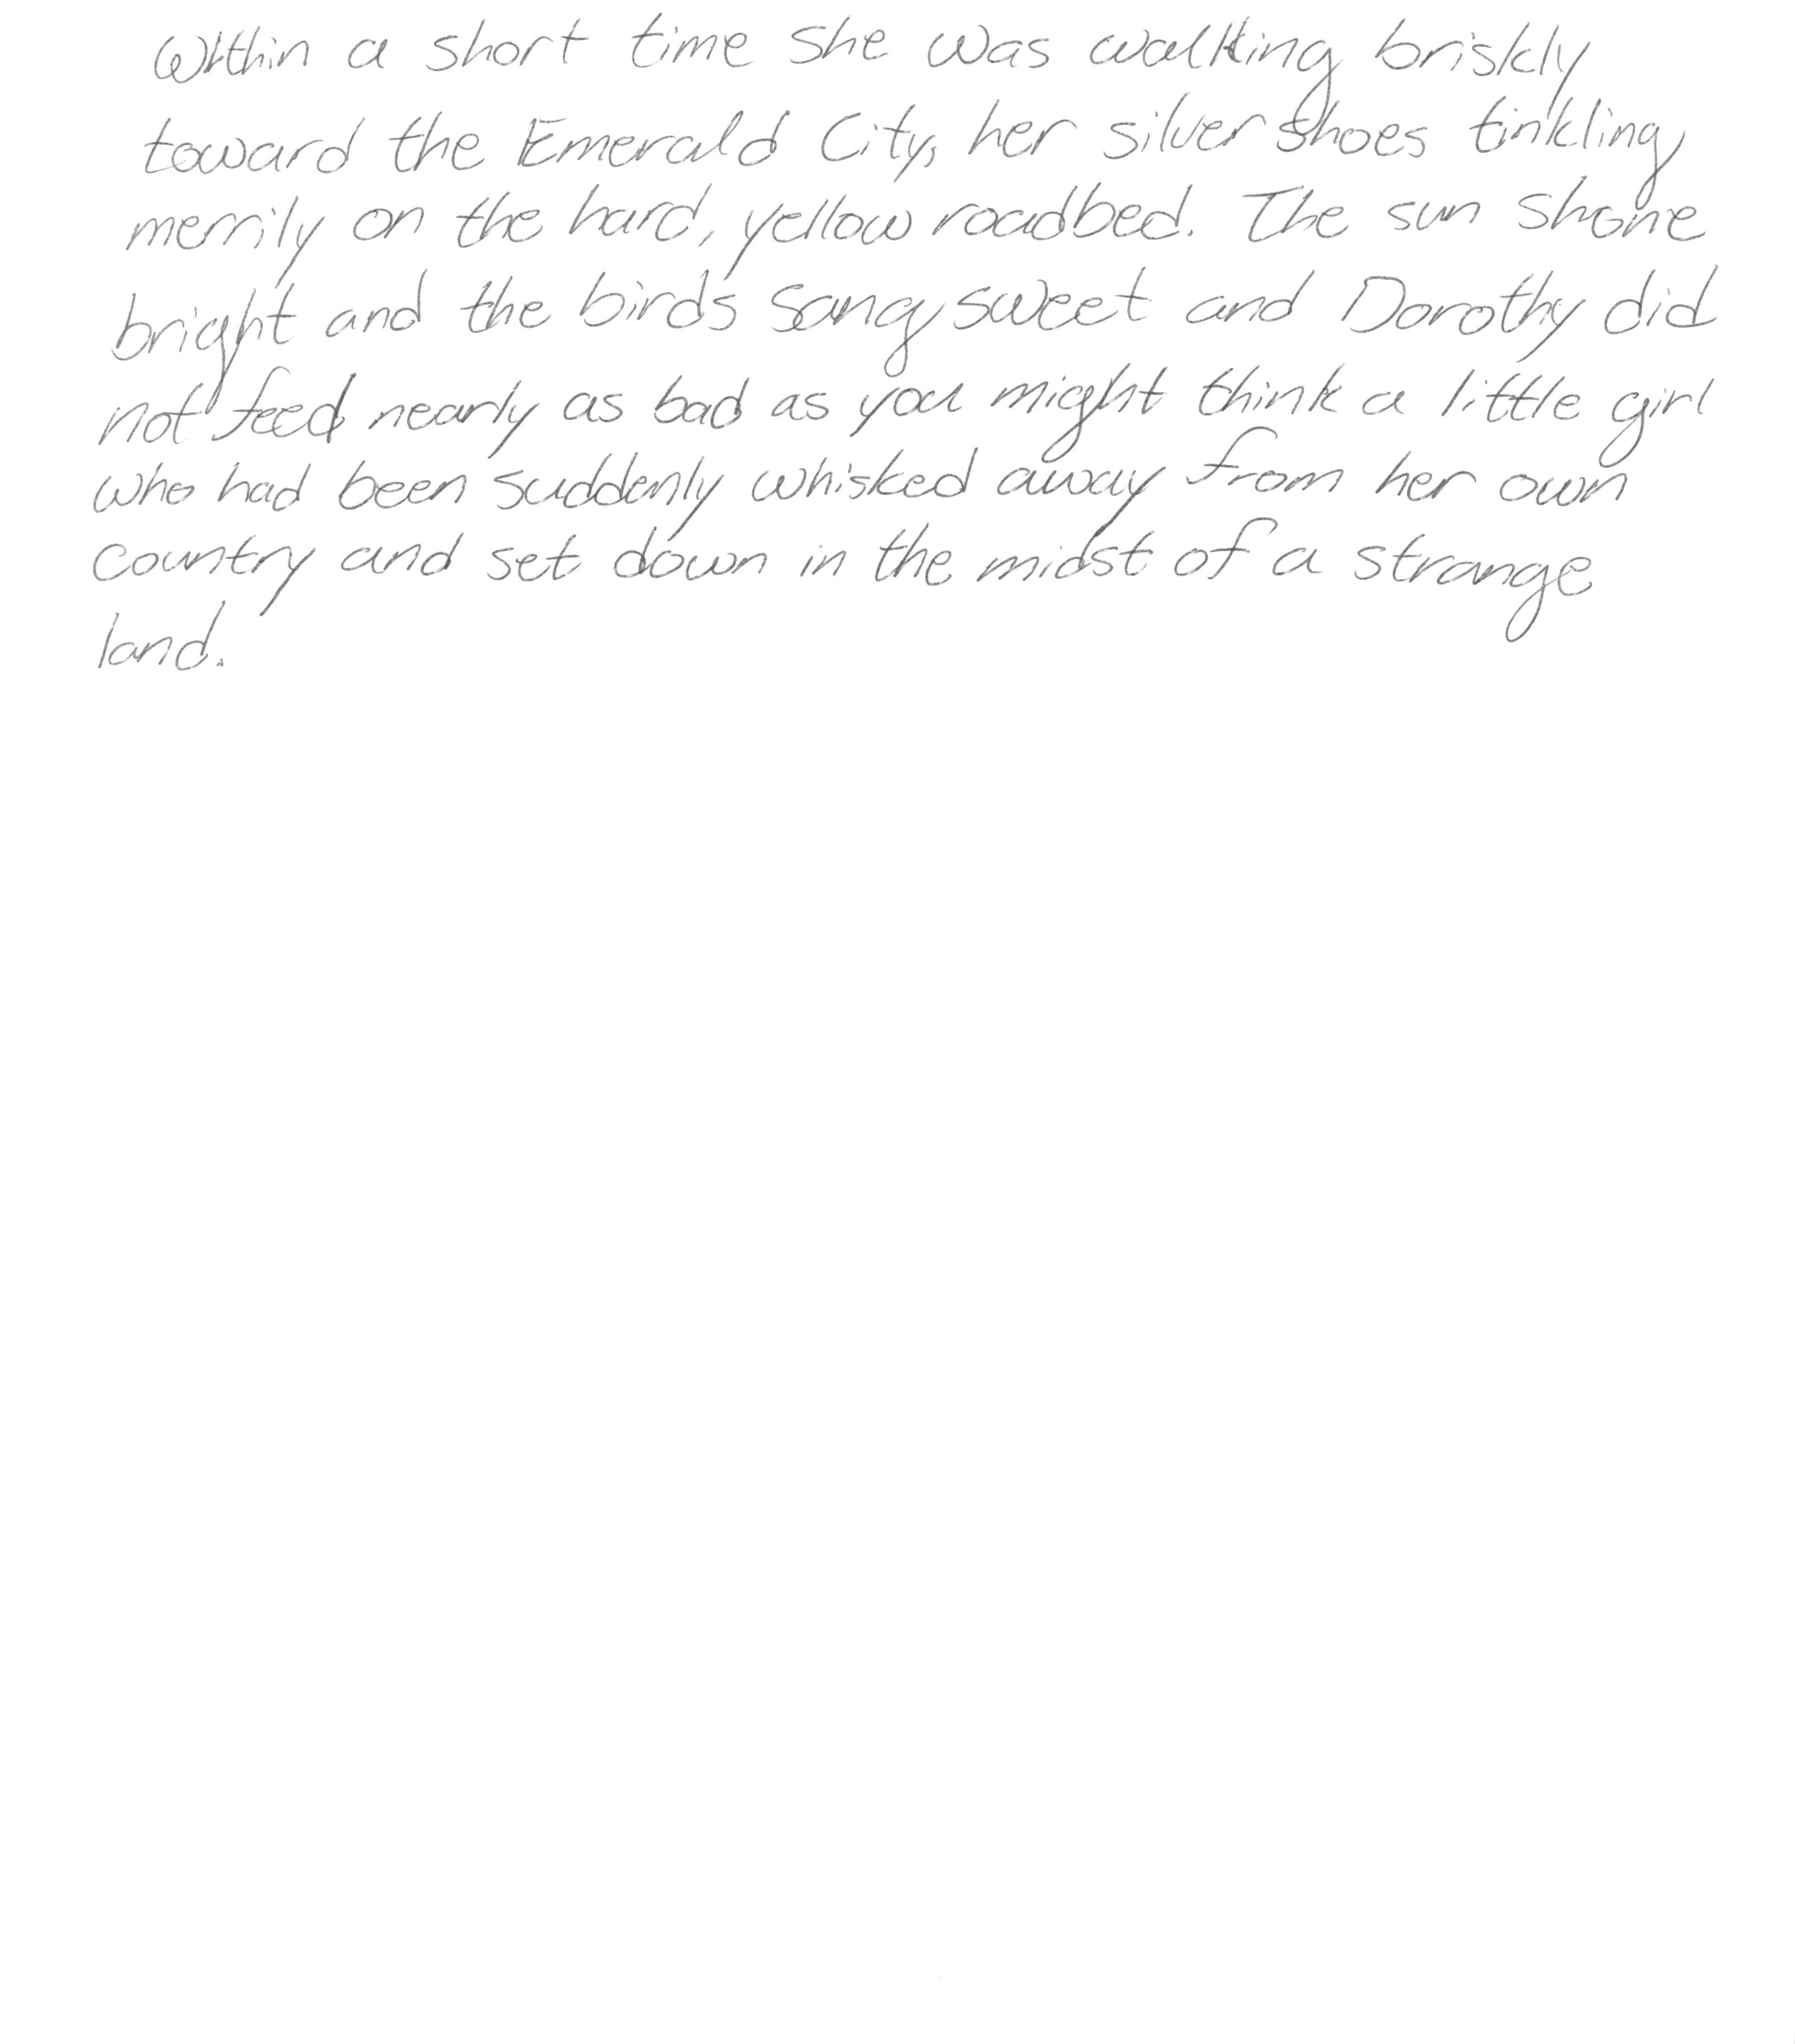 Within a short time she was walking briskly
toward the Emerald City, her silver shoes tinkling
merrily on the hard, yellow roadbed. The sun shone
bright and the birds sang sweet and Dorothy did
not feed nearly as bad as you might think a little girl
who had been suddenly whisked away from her own
country and set down in the midst of a strange
land.